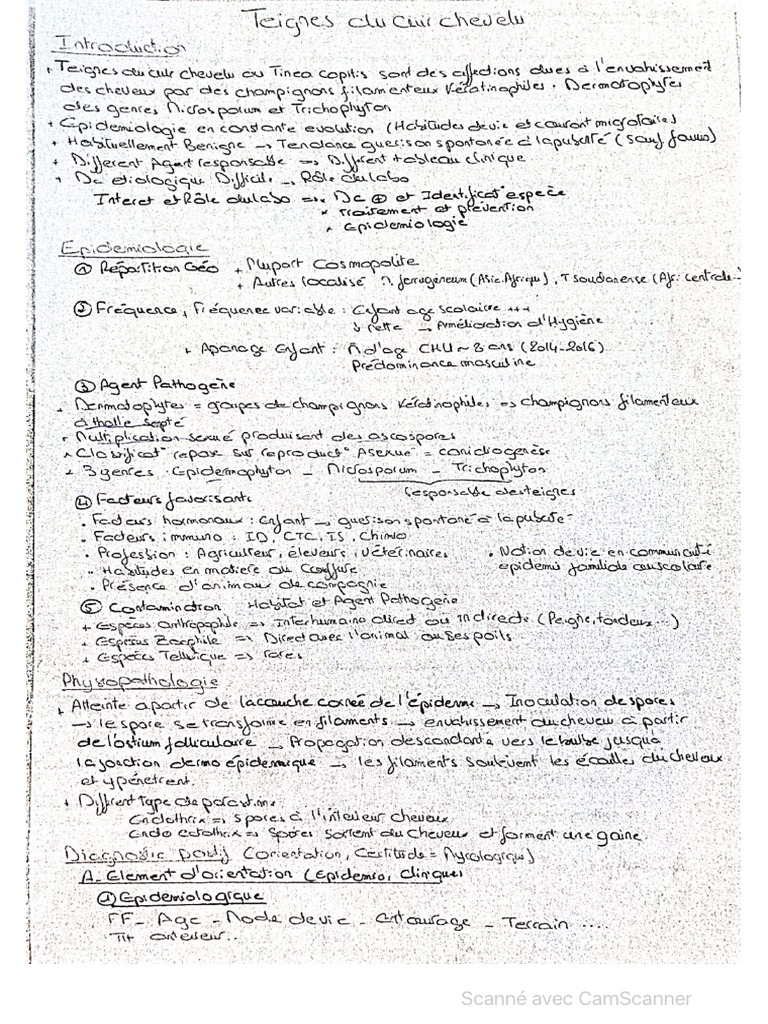 Teignes du cuir chevelu
Introduction
+ Teignes du cuir chevelu ou Tinea capitis sont des affections dues à l'envahissement
des cheveux par des champignons filamenteux Kératinophiles. Dermatophytes
des genres Microsporum et Trichophyton
+ Epidemiologie en constante evolution (Habitudes de vie et courant migratoire)
+ Habituellement Benigne → Tendance guerison spontanée à la puberté (sauf favus)
+ Different Agent responsable → Different tableau clinique
+ Dc etiologique Difficile → Rôle du labo
Interet et Rôle du labo => Dc ⊕ et Identificat° espèce
* Traitement et prévention
* Epidemiologie
Epidemiologie
① Répartition Géo + Plupart Cosmopolite
+ Autres localisé M. ferrugineum (Asie. Afrique), T soudanense (Afr. Centrale..)
② Fréquence, Fréquence variable : Enfant age scolaire +++
↓ nette → Amélioration d'Hygiène
+ Apanage Enfant : M̄ d'age CHU ~ 8 ans (2014-2016)
Prédominance masculine
③ Agent Pathogène
. Dermatophytes = groupes de champignons Kératinophiles => champignons filamenteux
à thalle septé
. Multiplication sexué produisant des ascospores
* Classificat° repose sur reproduct° Asexué = conidiogenèse
+ 3 genres. Epidermophyton - Microsporum - Trichophyton
responsable des teignes
④ Facteurs favorisants
. Facteurs hormonaux : Enfant → guerison spontané à la puberté
. Facteurs immuno : ID, CTC, IS, Chimio
. Profession : Agriculteur, éleveurs, vétérinaires . Notion de vie en communauté
. Habitudes en matiere du Coiffure epidemie familiale ou scolaire
. Présence d'animaux de compagnie
⑤ Contamination Habitat et Agent Pathogène
+ Espèces anthropophile => Interhumaine direct ou indirecte (Peigne, tondeux...)
+ Espèces Zoophile => Direct avec l'animal ou ses poils
+ Espèces Tellurique => rares
Physiopathologie
+ Atteinte a partir de la couche cornée de l'épiderme → Inoculation de spores
→ le spore se transforme en filaments → envahissement du cheveu à partir
de l'ostium folliculaire → Propagation descendante vers le bulbe jusqua
la jonction dermo épidermique → les filaments soulevent les écailles du cheveux
et y pénètrent.
+ Différent type de parasitisme:
Endothrix => spores à l'interieur cheveux
Endo ectothrix => Spores sortent du cheveux et forment une gaine
Diagnostic positif (orientation, Certitude = Mycologique)
A- Element d'orientation (Epidemio, clinique)
① Epidemiologique
FF - Age - Mode de vie - Entourage - Terrain ....
Ttt anterieur..
Scanné avec CamScanner